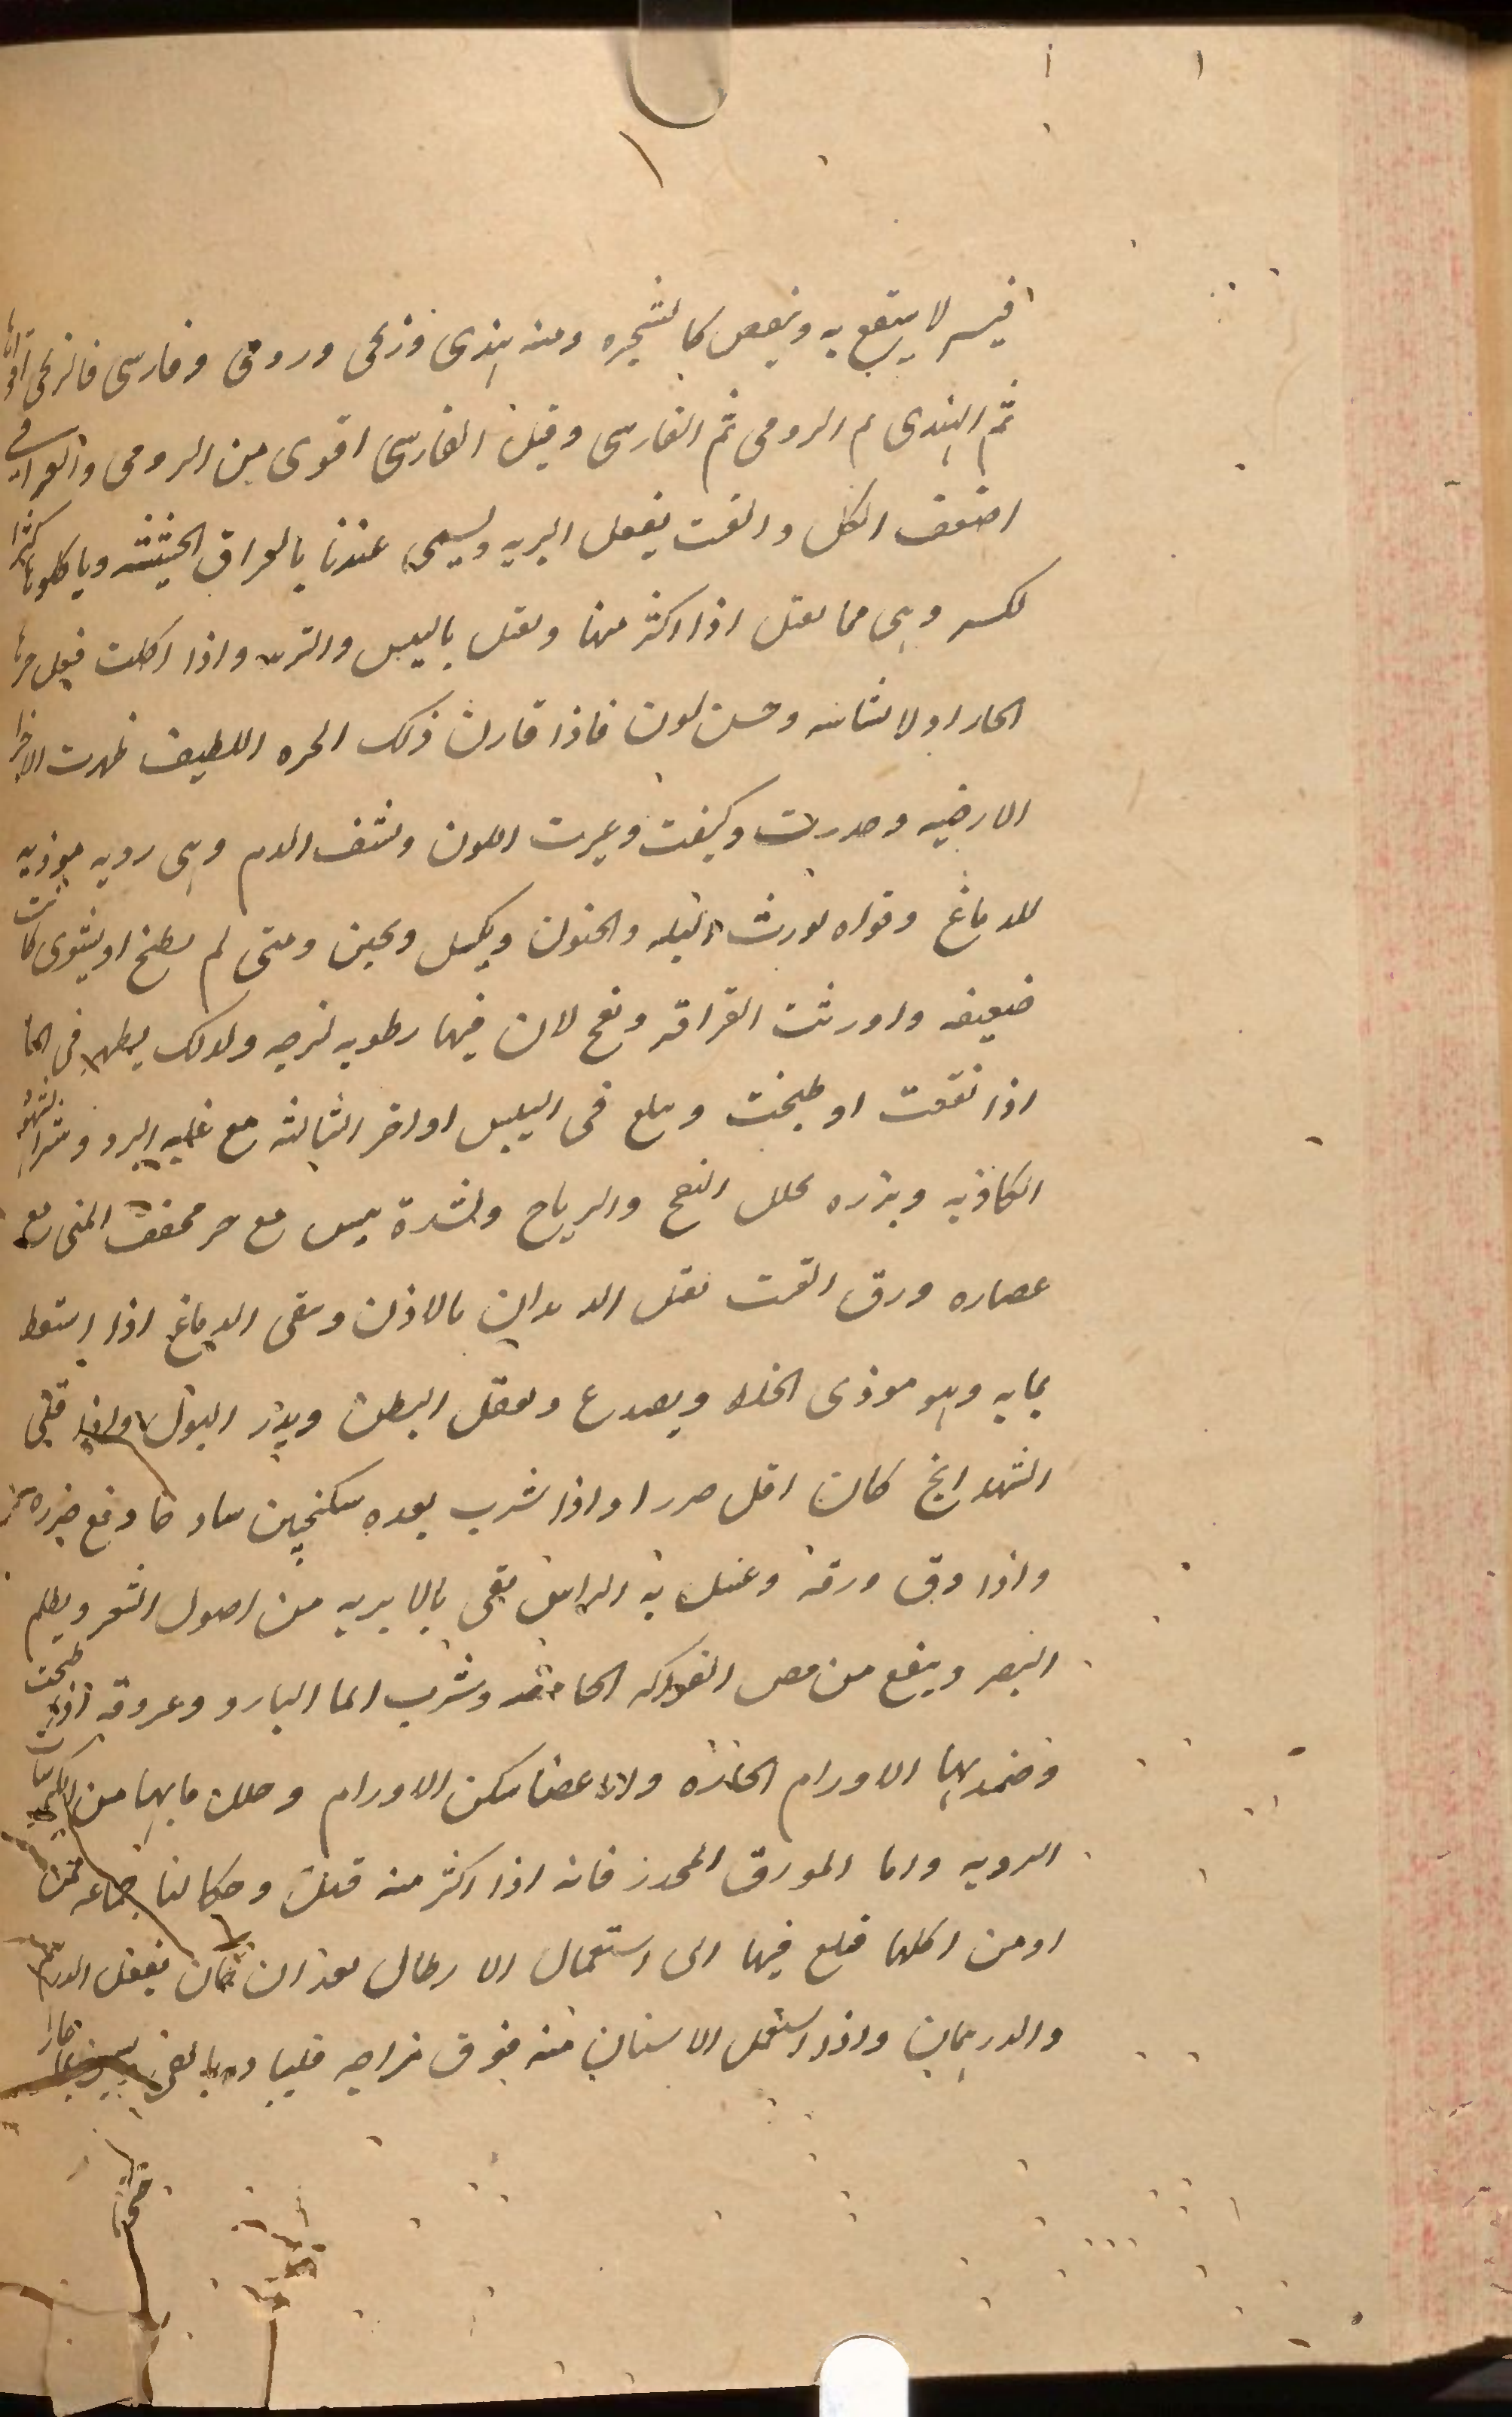 لا ينتفع به وبعض كالشجره ومنه هندى وزنجى ورومى وفارسى فالزنجى اقواها
ثم الهندى ثم الرومى ثم الفارسى وقيل الفارسى اقوى من الرومى والعراقى
اضعف الكل والقت يفعل البريه ويسمى عندنا بالعراق الحشيشه وياكلونها كثيرا
وهى مما يقتل اذا اكثر منها ويقتل باليبس والبرد واذا اكلت فعل جزها
الحار اولا نشاشه وحسن لون فاذا فارق ذلك الجزء اللطيف ظهرت الاجزا
الارضيه وخدرت وكيفت وغيرت اللون ونشف الدم وهى رديه موذيه
للدماغ وقواه يورث البله والجنون ويكسل ويجبن ومتى لم يطبخ او يشوى كانت
ضعيفه واورثت القراقر ونفخ لان فيها رطوبه لزجه ولذلك يظهر فى الما
اذا نقعت او طبخت ويبلغ فى اليبس اواخر الثالثه مع غلبه البرد
الكاذبه وبزره يحلل النفخ والرياح ولشدة يبس مع حر يجفف المنى
عصاره ورق القت تقتل الديدان بالاذن وينقى الدماغ اذا استعط
بمايه وهو موذى الخلط ويصدع ويعقل البطن ويدر البول واذا قلى
الشهدانج كان اقل ضررا واذا شرب بعده سكنجبين ساذجا دفع ضرره
واذا دق ورقه وغسل به الراس نقى بالابريه من اصول الشعر ويظلم
البصر وينفع من مص الفواكه الحامضه وشرب الما البارد وعروقه اذا طبخت
وضمد بها الاورام الحاره والاعضا سكن الاورام وحلل ما بها من
الرديه واما الورق المخدر فانه اذا اكثر منه قتل وحكا لنا جماعه ممن
اومن اكلها فبلغ فيها الى استعمال الارطال بعد ان كان يفعل الدرهم
والدرهمان واذا استعمل الانسان منه فوق مزاجه فليبادر بالقى